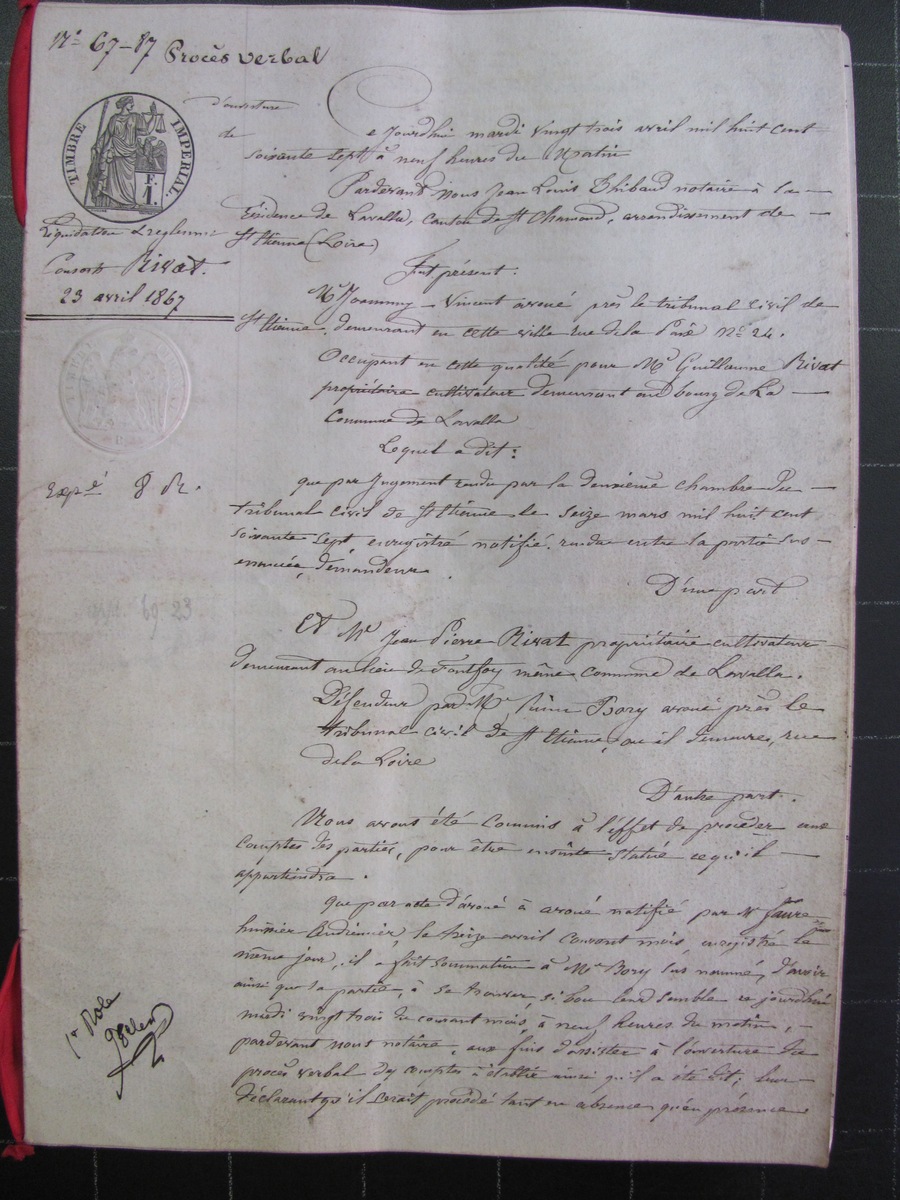 N° 67-87 Procès verbal
d'ouverture
de
TIMBRE IMPERIAL
F.
1.
Liquidation & règlemt
Consorts Rivat.
23 avril 1867
Expé 8 R.
Ce Jourdhui mardi vingt trois avril mil huit cent
soixante sept à neuf heures du Matin
Pardevant Nous Jean Louis Thibaud notaire à la
Résidence de Lavalla, Canton de St Chamond, arrondissement de
St Etienne (Loire)
Fut présent:
Me Joanny Vincent avoué près le tribunal Civil de
St Etienne, demeurant en cette ville rue de la Paix N° 24.
Occupant en cette qualité pour Mr Guillaume Rivat
propriétaire cultivateur demeurant au bourg de La
Commune de Lavalla
Lequel a dit:
que par Jugement rendu par la deuxième chambre du
tribunal civil de St Etienne le seize mars mil huit cent
soixante sept enregistré notifié, rendu entre la partie sus
énoncée, demandeur
D'une part
Et Mr Jean Pierre Rivat propriétaire cultivateur
demeurant au lieu de Fontfoy même commune de Lavalla.
Défendeur par Me Bory avoué près le
tribunal civil de St Etienne, ou il demeure, rue
de la Loire
D'autre part.
Nous avons été Commis à l'effet de procéder aux
comptes des parties, pour être ensuite statué ce qu'il
appartiendra.
que par acte d'avoué à avoué notifié par Mr Faure
huissier Audiencier, le treize avril courant mois, enregistré le
même jour, il a fait sommation à Me Bory sus nommé, d'avoir
ainsi que sa partie, à se trouver, si bon leur semble ce jourdhui
mardi vingt trois du courant mois, à neuf heures du matin,
pardevant nous notaire, aux fins d'assister à l'ouverture du
procès verbal des comptes à établir ainsi qu'il a été dit; leur
déclarant qu'il serait procédé tant en absence qu'en présence
1er Role